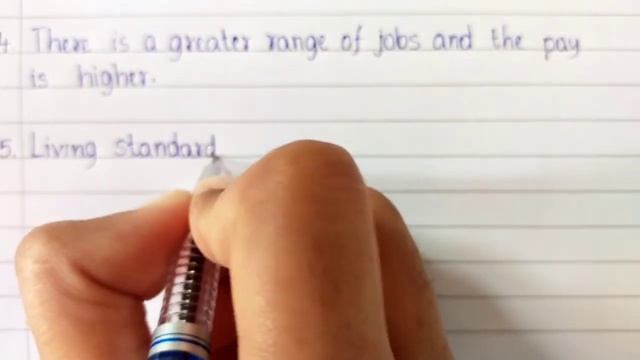 4 There is a greater range of jobs and the pay
is higher.
5. Living standard